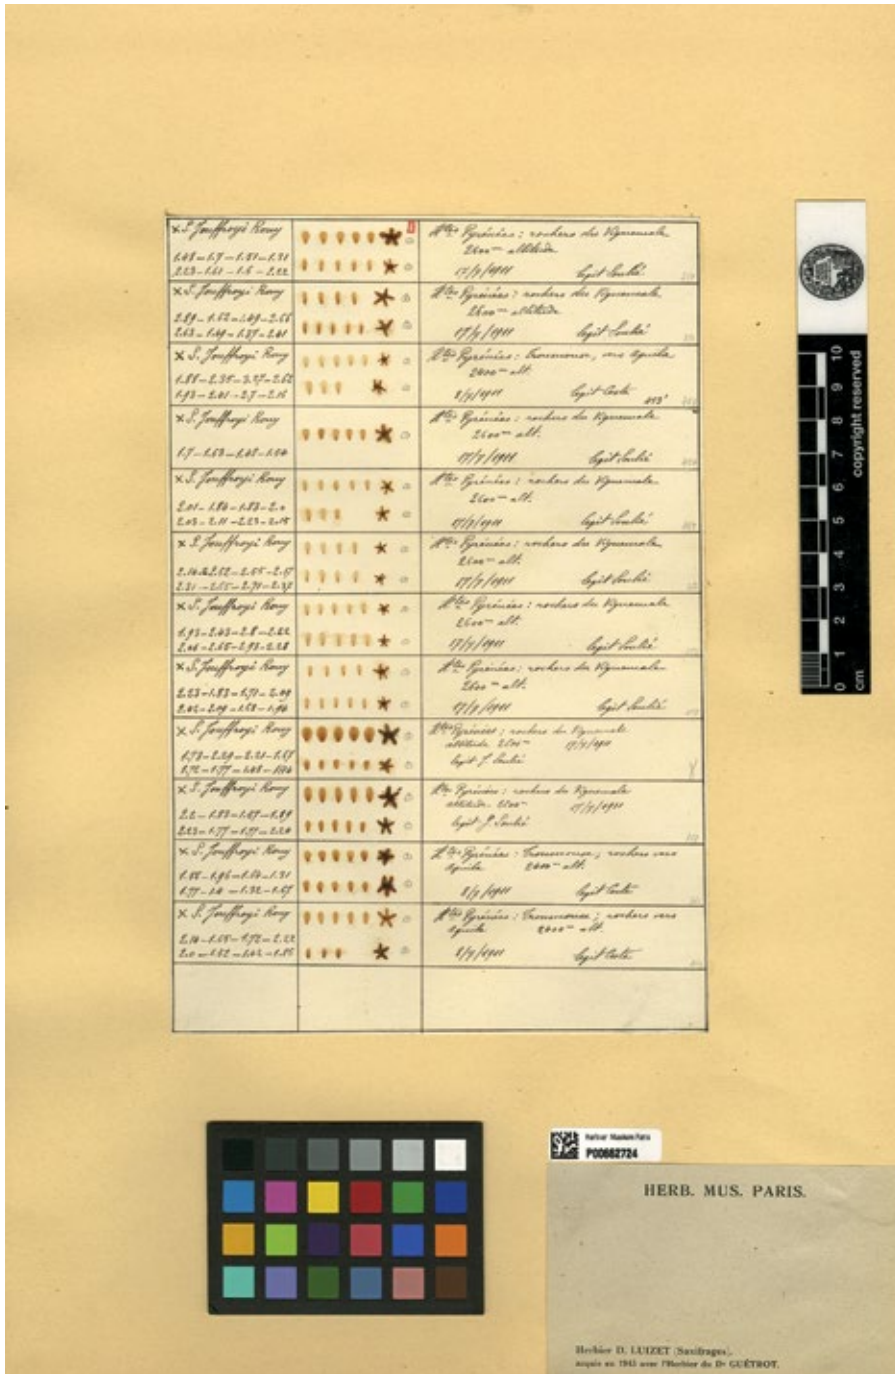 × S. Jouffroyi Rouy
1.48 – 1.7 – 1.51 – 1.31
2.23 – 1.61 – 1.6 – 2.22
Htes Pyrénées : rochers du Vignemale
2600m altitude
17/7/1911 legit Soulié
× S. Jouffroyi Rouy
2.89 – 1.52 – 1.49 – 2.56
2.63 – 1.49 – 1.37 – 2.41
Htes Pyrénées : rochers du Vignemale
2600m altitude
17/7/1911 legit Soulié
× S. Jouffroyi Rouy
1.93 – 2.01 – 2.7 – 2.16
Htes Pyrénées : Troumouse, vers
2400m alt.
8/7/1911 legit Coste
413'
× S. Jouffroyi Rouy
1.7 – 1.53 – 1.48 – 1.54
Htes Pyrénées : rochers du Vignemale
2600m alt.
17/7/1911 legit Soulié
× S. Jouffroyi Rouy
2.01 – 1.84 – 1.83 – 2.0
2.03 – 2.11 – 2.23 – 2.15
Htes Pyrénées : rochers du Vignemale
2600m alt.
17/7/1911 legit Soulié
× S. Jouffroyi Rouy
2.31 – 2.55 – 2.71 – 2.37
Htes Pyrénées : rochers du Vignemale
2600m alt.
17/7/1911 legit Soulié
× S. Jouffroyi Rouy
1.93 – 2.43 – 2.8 – 2.22
2.06 – 2.65 – 2.93 – 2.28
Htes Pyrénées : rochers du Vignemale
2600m alt.
17/7/1911 legit Soulié
× S. Jouffroyi Rouy
2.23 – 1.83 – 1.71 – 2.09
2.02 – 2.09 – 1.58 – 1.94
Htes Pyrénées : rochers du Vignemale
2600m alt.
17/7/1911 legit Soulié
× S. Jouffroyi Rouy
1.73 – 2.29 – 2.21 – 1.57
Htes Pyrénées : rochers du Vignemale
altitude 2600m 17/7/1911
legit J. Soulié
× S. Jouffroyi Rouy
2.2 – 1.83 – 1.87 – 1.89
2.23 – 1.77 – 1.77 – 2.20
Htes Pyrénées : rochers du Vignemale
altitude 2600m 17/7/1911
legit J. Soulié
× S. Jouffroyi Rouy
1.88 – 1.96 – 1.54 – 1.31
Htes Pyrénées : Troumouse, rochers vers
2400m alt.
8/7/1911 legit Coste
× S. Jouffroyi Rouy
2.14 – 1.55 – 1.72 – 2.22
2.0 – 1.52 – 1.42 – 1.85
Htes Pyrénées : Troumouse ; rochers vers
2400m alt.
8/7/1911 legit Coste
0 1 2 3 4 5 6 7 8 9 10
cm
copyright reserved
P00662724
HERB. MUS. PARIS.
Herbier D. LUIZET (Saxifrages),
acquis en 1943 avec l'Herbier du Dr GUÉTROT.